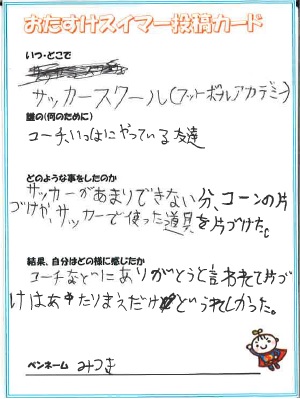 おたすけスイマー投稿カード
いつ・どこで
サッカースクール(フットボールアカデミー)
誰の(何のために)
コーチ、いっしょにやっている友達
どのような事をしたのか
サッカーがあまりできない分、コーンの片
づけや、サッカーで使った道具を片づけた。
結果、自分はどの様に感じたか
コーチなどにありがとうと言われて片づ
けはあたりまえだけどうれしかった。
ペンネーム みつき